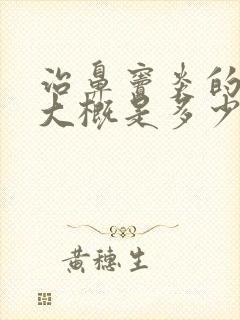 治鼻窦炎的
大概是多少
黄穗生